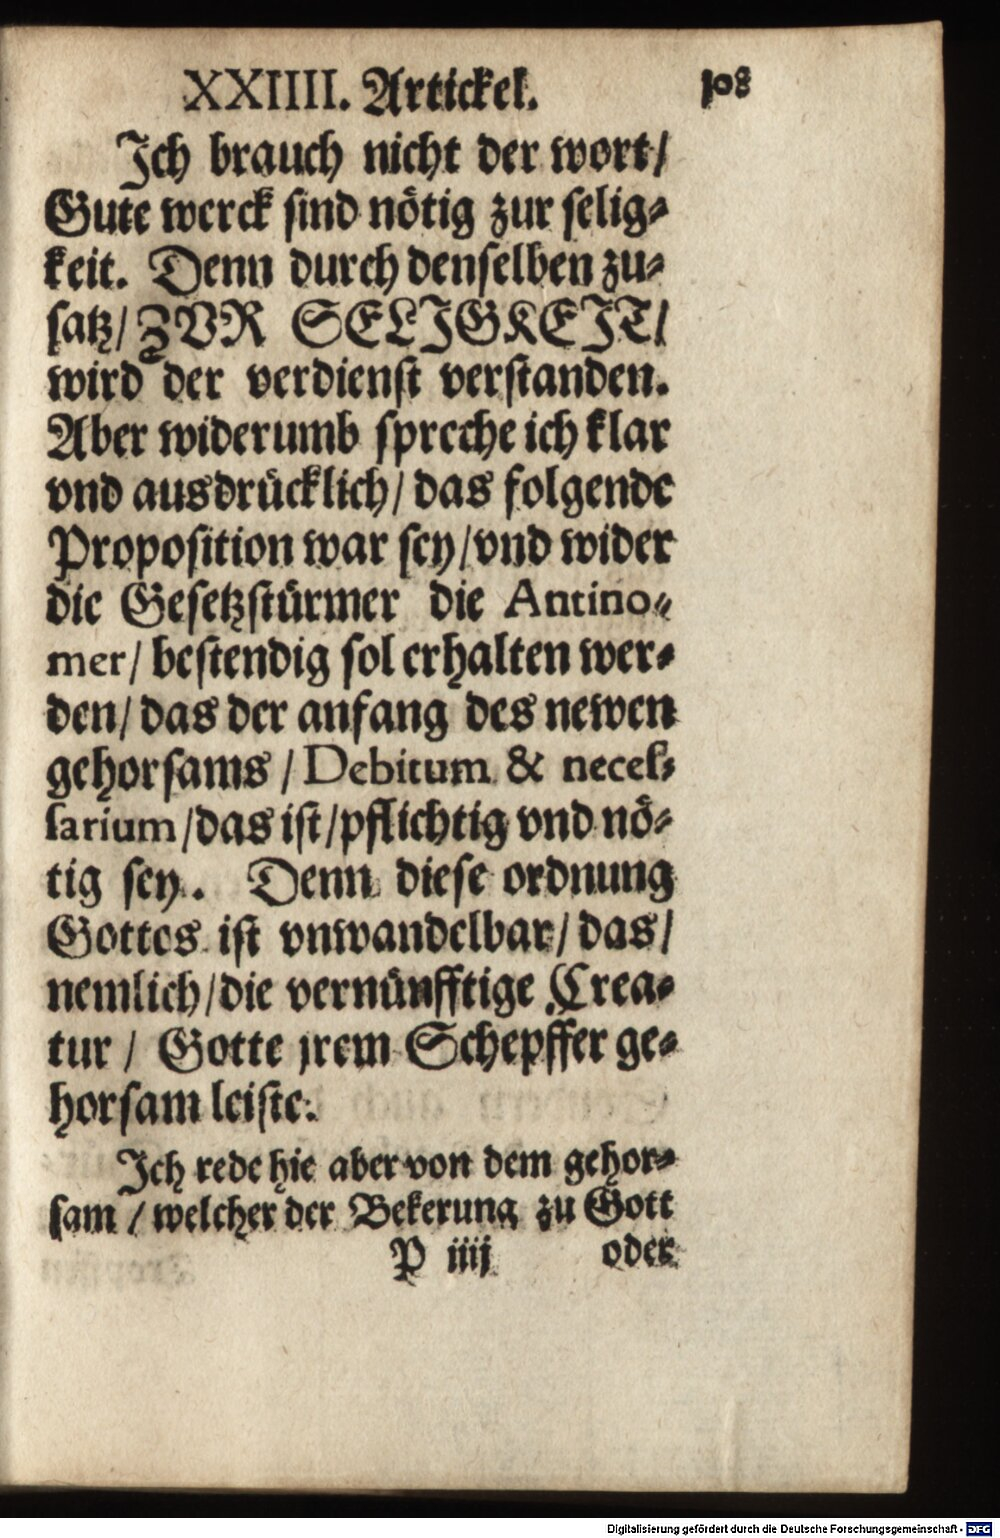 XXIIII. Artickel. 108
Ich brauch nicht der wort/
Gute werck sind nötig zur selig⸗
keit. Denn durch denselben zu⸗
satz/ ZVR SELIGKEIT/
wird der verdienst verstanden.
Aber widerumb spreche ich klar
vnd ausdrücklich/ das folgende
Proposition war sey/vnd wider
die Gesetzstürmer die Antino⸗
mer/ bestendig sol erhalten wer⸗
den/ das der anfang des newen
gehorsams / Debitum & neces⸗
sarium/das ist/pflichtig vnd nö⸗
tig sey. Denn diese ordnung
Gottes ist vnwandelbar/ das/
nemlich/die vernünfftige Crea⸗
tur/ Gotte jrem Schepffer ge⸗
horsam leiste.
Ich rede hie aber von dem gehor⸗
sam / welcher der Bekerung zu Gott
P iiij oder
Digitalisierung gefördert durch die Deutsche Forschungsgemeinschaft - DFG